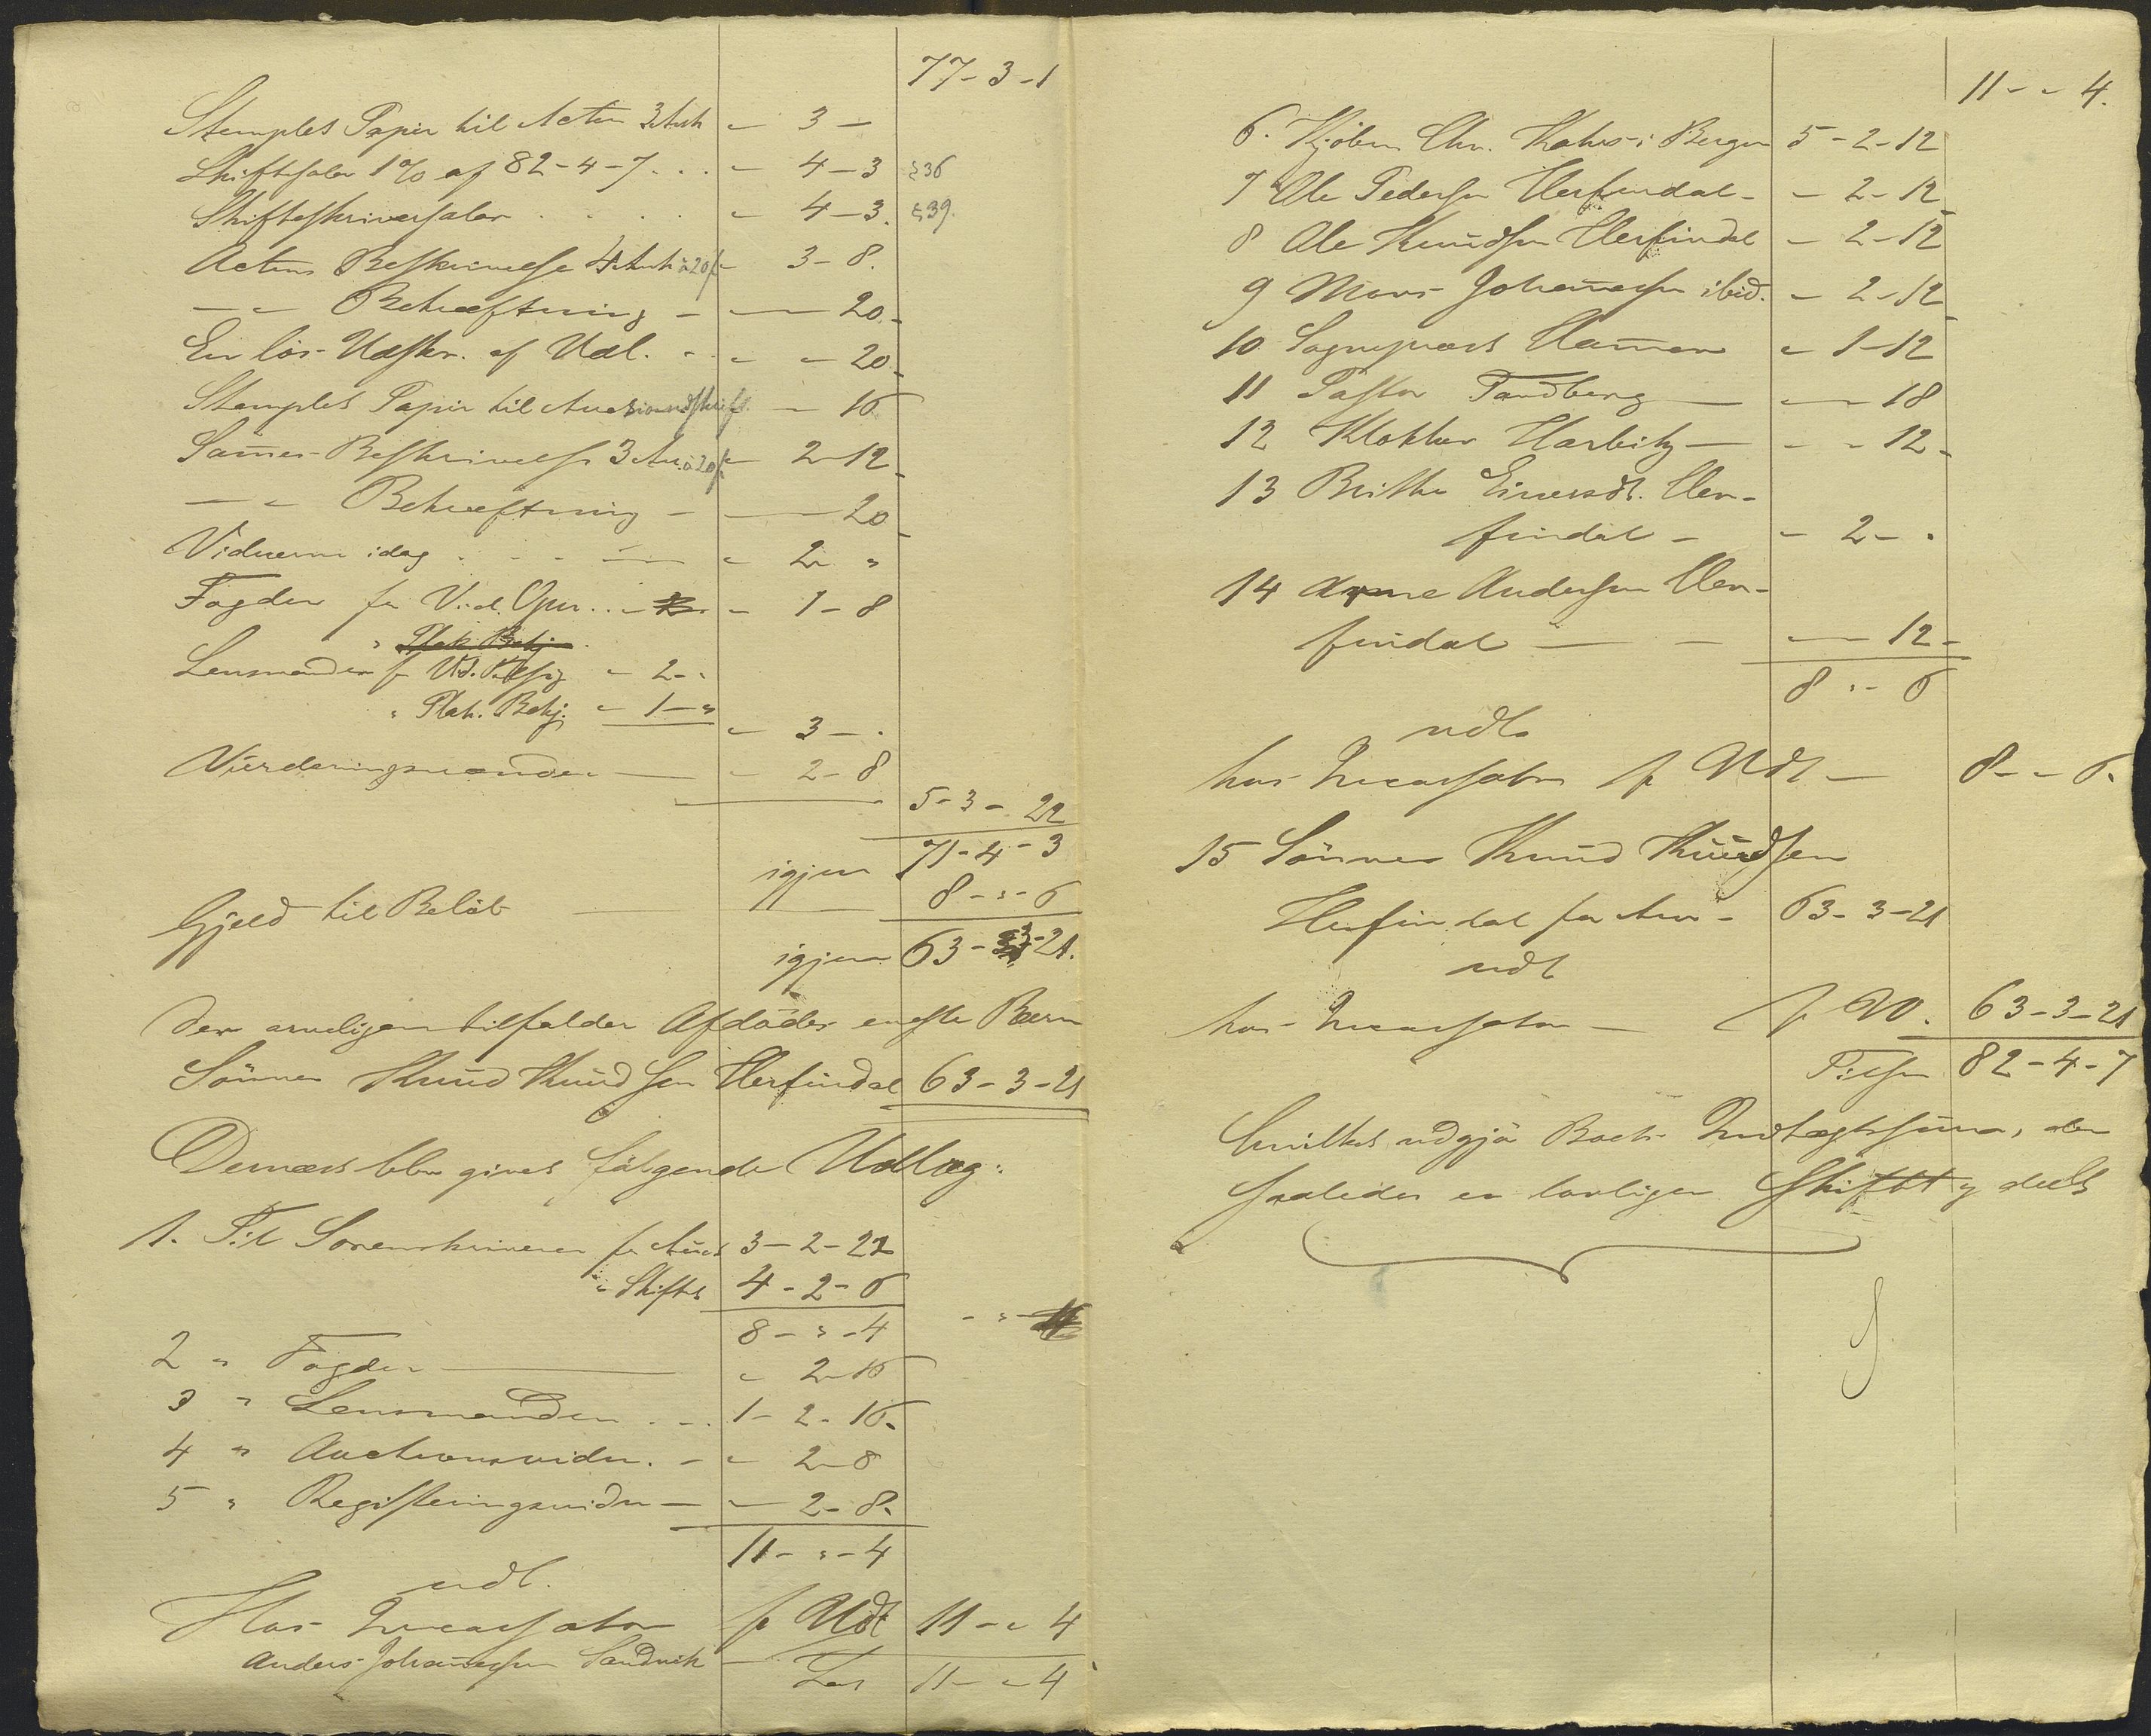 77-3-1
Stemplet Papir til Acten 3 Ark " 3 -
Skiftesalær 1% af 82-4-7 . . . " 4-3 §36
Skifteskriversalær . . . . " 4-3. §39.
Actens Beskrivelse 4 Ark à 20 f - 3-8.
— " Bekræftning - — 20.
En løs Udskr. af Udl. - " " 20
Stemplet Papir til Auctionsudskrift - 16
Sammes Beskrivelse 3 Ark à 20 f 2-12
— " Bekræftning - — 20
Vidnerne idag . . . — " 2 - "
Fogden for Vid. Opn. . . - 1-8
" Plak. Bekj.
Lensmanden f Vid. " 2-"
" Plak. Bekj. " 1-"
" 3 - .
Vurderingsmænden — " 2-8
5-3-22
igjen 71-4-3
Gjeld til Beløb — 8-"-6
igjen 63-3-21.
der arveligen tilfalder Afdødes eneste Barn
Sønnen Knud Knudsen Herfindal 63-3-21
Dernæst blev givet følgende Udlæg:
1. Til Sorenskriveren for Auct 3-2-22
" Skiftet 4-2-6
8-"-4
2 " Fogden — " 2-16
3 " Lensmanden . . . 1-2-16.
4 " Auctionsvidn. - " 2-8
5 " Registeringsvidn — — 2-8.
11-"-4
udl.
Hos Incassator f Udt 11-"-4
Anders Johannessen Sandvik — Lat 11-"-4
11-"-4.
6. Kjøbm. Chr. Kahrs i Bergen 5-2-12
7 Ole Pedersen Herfindal - - 2-12
8 Ole Knudsen Herfindal - 2-12
9 Mons Johannessen ibid. - 2-12
10 Sogneprest Hammer " 1-12
11 Pastor Tandberg — — 18
12 Klokker Harbitz — - " 12-
13 Brithe Einersdt. Her-
findal - - 2-.
14 Arne Andersen Her-
findal — - — 12-
8 "-6
udl.
hos Incassator f Udt — 8-"-6.
15 Sønnen Knud Knudsen
Herfindal for Arv - 63-3-21
udl
hos Incassator — f Ud. 63-3-21
Tilsm 82-4-7
hvilket udgjør Boets Indtægtssum, der
saaledes er lovligen Skiftet og deelt